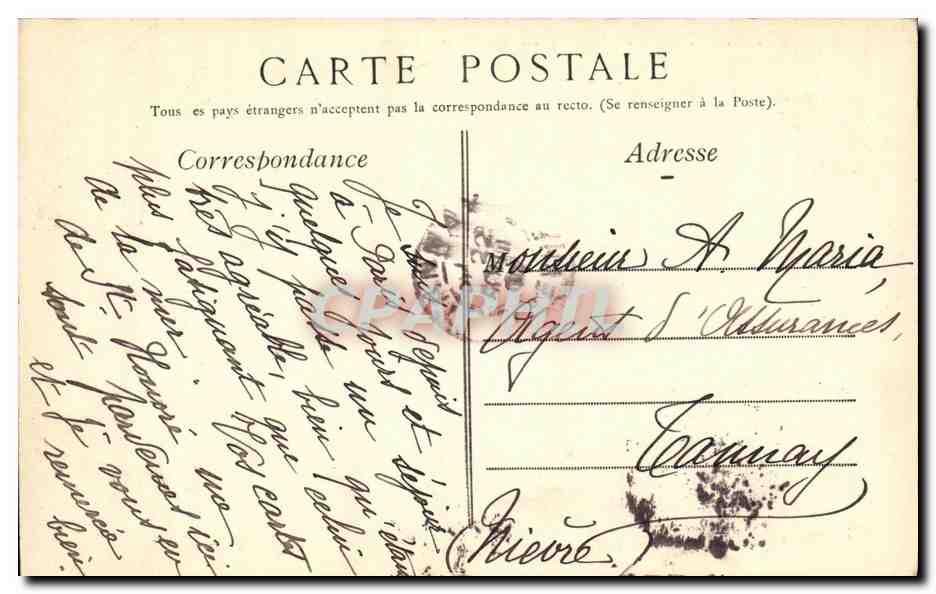 CARTE POSTALE
Tous es pays étrangers n'acceptent pas la correspondance au recto. (Se renseigner à la Poste).
Correspondance
Adresse
Je suis depuis
à Paris et
quelques jours
j'y passe un
très agréable,
plus fatiguant que
la mer. Vos cartes
de la St Honoré me
sont parvenues ici
et je vous en
remercie
bien
Monsieur A. Maria,
Agent d'Assurances,
Tannay
(Nièvre)
CPAPHIL